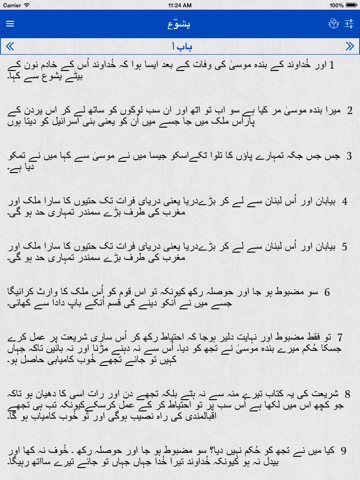 Carrier 11:24 AM 100%
یشوؔع
باب ۱
1 اور خُداوند کے بندہ موسیٰ کی وفات کے بعد ایسا ہوا کہ خُداوند اُس کے خادم نون کے
بیٹے یشوع سے کہا۔
2 میرا بندہ موسیٰ مر گیا ہے سو اب تو اٹھ اور ان سب لوگوں کو ساتھ لے کر اس یردن کے
پاراس ملک میں جا جسے میں اُن کو یعنی بنی اسرائیل کو دیتا ہوں
3 جس جس جگہ تمہارے پاؤں کا تلوا ٹکےاسکو جیسا میں نے موسیٰ سے کہا میں نے تمکو
دیا ہے۔
4 بیابان اور اُس لبنان سے لے کر بڑےدریا یعنی دریای فرات تک حتیوں کا سارا ملک اور
مغرب کی طرف بڑے سمندر تمہاری حد ہو گی۔
5 بیابان اور اُس لبنان سے لے کر بڑےدریا یعنی دریای فرات تک حتیوں کا سارا ملک اور
مغرب کی طرف بڑے سمندر تمہاری حد ہو گی۔
6 سو مضبوط ہو جا اور حوصلہ رکھ کیونکہ تو اس قوم کو اُس ملک کا وارث کرائیگا
جسے میں نے اُنکو دینے کی قسم اُنکے باپ دادا سے کھائی۔
7 تو فقط مضبوط اور نہایت دلیر ہوجا کہ احتیاط رکھ کر اُس ساری شریعت پر عمل کرے
جسکا حُکم میرے بندہ موسیٰ نے تجھ کو دیا۔ اُس سے نہ دہنے مڑنا اور نہ بائیں تاکہ جہاں
کہیں تو جائے تجھے خُوب کامیابی حاصل ہو۔
8 شریعت کی یہ کتاب تیرے منہ سے نہ ہٹے بلکہ تجھے دن اور رات اسی کا دھیان ہو تاکہ
جو کچھ اس میں لکھا ہے اُس سب پر تو احتیاط کر کے عمل کرسکےکیونکہ تب ہی تجھے
اقبالمندی کی راہ نصیب ہوگی اور تُو خُوب کامیاب ہو گا
9 کیا میں نے تجھ کو حُکم نہیں دیا؟ سو مضبوط ہو جا اور حوصلہ رکھ ۔ خُوف نہ کھا اور
بیدل نہ ہو کیونکہ خُداوند تیرا خُدا جہاں جہاں تو جائے تیرے سااتھ رہیگا۔